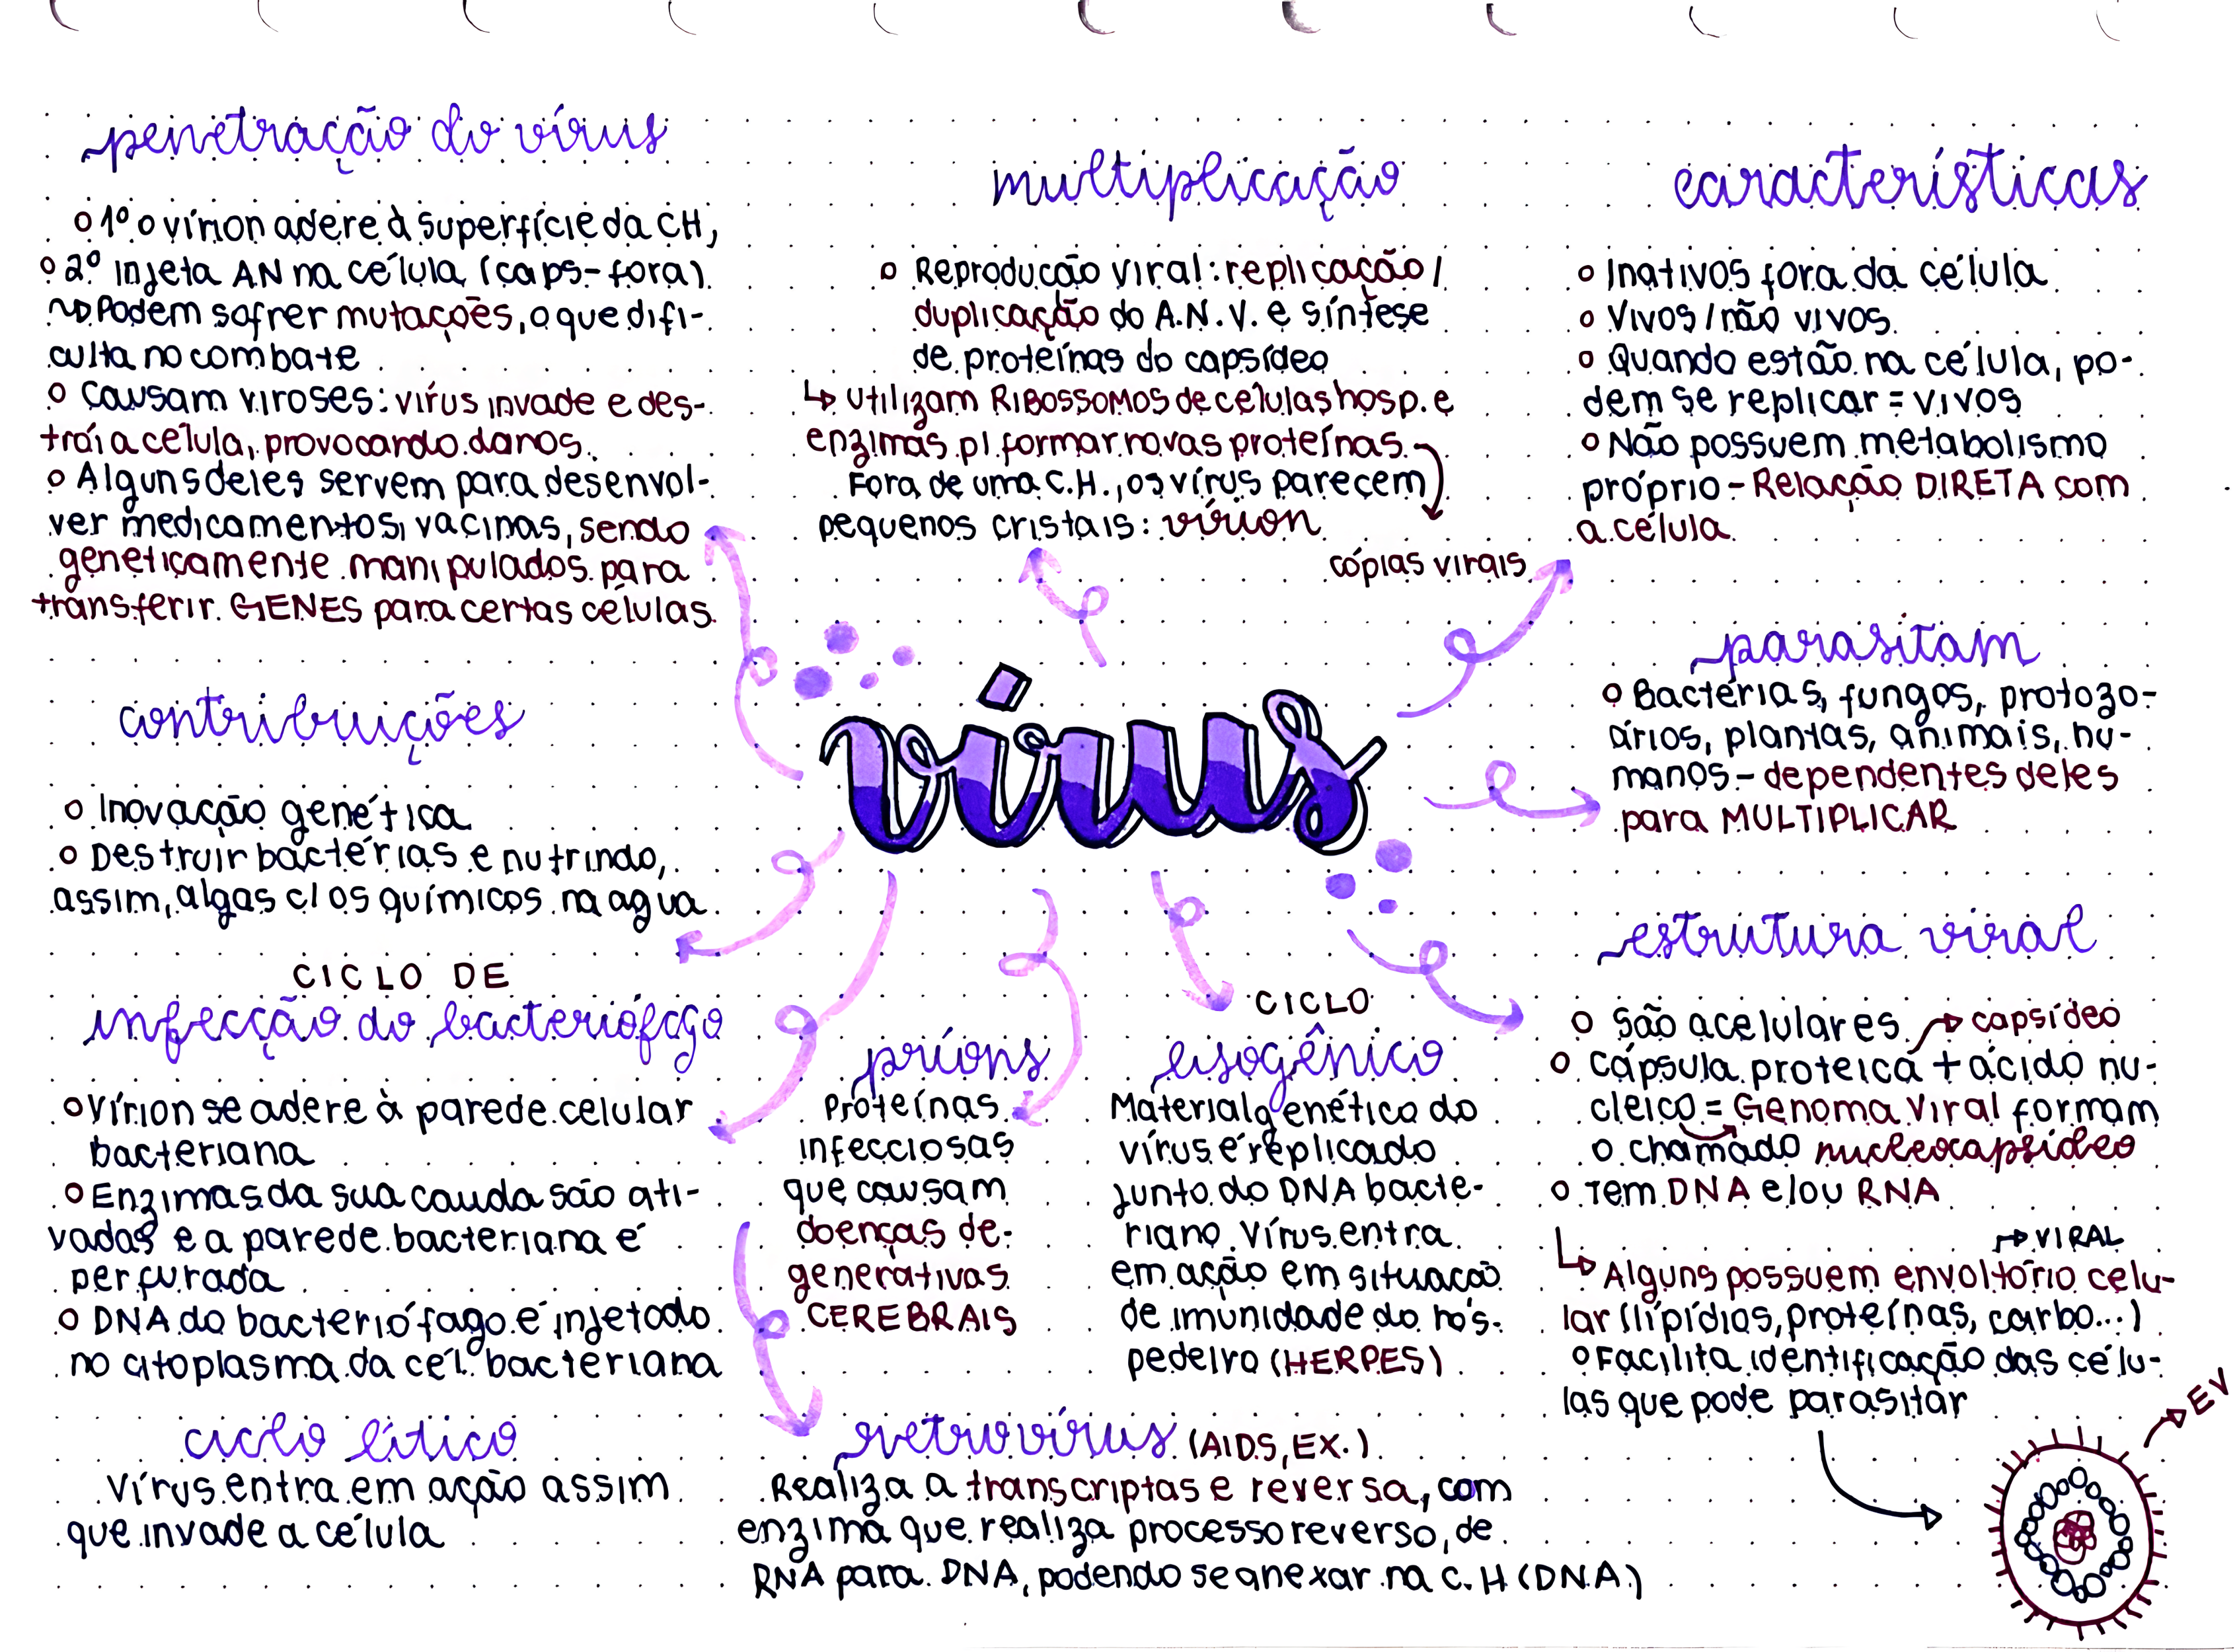 penetração do vírus
o 1º o vírion adere à superfície da CH,
o 2º Injeta AN na célula (caps-fora)
Podem sofrer mutações, o que difi-
culta no combate
o Causam viroses: vírus invade e des-
trói a célula, provocando danos.
o Alguns deles servem para desenvol-
ver medicamentos, vacinas, sendo
geneticamente manipulados para
transferir GENES para certas células.
multiplicação
o Reprodução viral: replicação/
duplicação do A.N.V. e síntese
de proteínas do capsídeo
↳ utilizam RIBOSSOMOS de células hosp. e
enzimas p/ formar novas proteínas
Fora de uma C.H., os vírus parecem
pequenos cristais: vírion
cópias virais
características
o Inativos fora da célula
o Vivos/não vivos
o Quando estão na célula, po-
dem se replicar = vivos
o Não possuem metabolismo
próprio - Relação DIRETA com
a célula
parasitam
o Bactérias, fungos, protozo-
ários, plantas, animais, hu-
manos - dependentes deles
para MULTIPLICAR
vírus
contribuições
o Inovação genética
o Destruir bactérias e nutrindo,
assim, algas c/ os químicos na agua
CICLO DE
infecção do bacteriófago
o Vírion se adere à parede celular
bacteriana
o Enzimas da sua cauda são ati-
vadas e a parede bacteriana é
perfurada
o DNA do bacteriófago é injetado
no citoplasma da cél. bacteriana
ciclo lítico
Vírus entra em ação assim
que invade a célula
príons
Proteínas
infecciosas
que causam
doenças de-
generativas
CEREBRAIS
CICLO
lisogênico
Material genético do
vírus é replicado
junto do DNA bacte-
riano. Vírus entra
em ação em situação
de imunidade do hós-
pedeiro (HERPES)
retrovírus (AIDS, EX.)
Realiza a transcriptase reversa, com
enzima que realiza processo reverso, de
RNA para DNA, podendo se anexar na C.H (DNA)
estrutura viral
o São acelulares → capsídeo
o Cápsula proteica + ácido nu-
cleico = Genoma Viral formam
o chamado nucleocapsídeo
o Tem DNA e/ou RNA
→ VIRAL
↳ Alguns possuem envoltório celu-
lar (lipídios, proteínas, carbo...)
o Facilita identificação das célu-
las que pode parasitar
EV